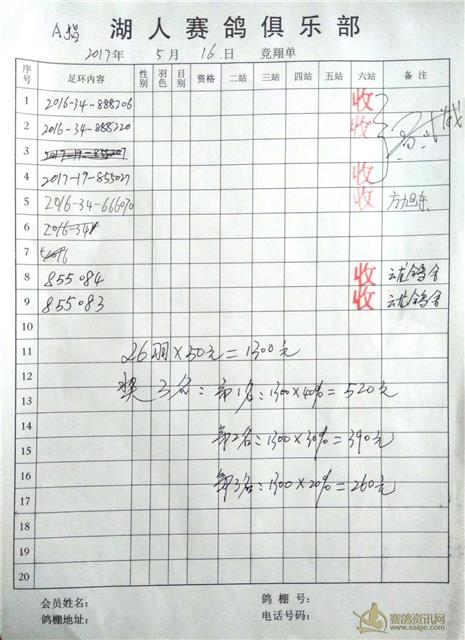 A指 湖人赛鸽俱乐部
2017年 5月 16日 竞翔单
序号 足环内容 性别 羽色 目别 资格 二站 三站 四站 五站 六站 备注
1 2016-34-888206 收
2 2016-34-888220 收
3 2017-19-855207
4 2017-19-855027 收
5 2016-34-666070 收 方旭东
6 2016-34
7
8 855084 收 云龙鸽舍
9 855083 收 云龙鸽舍
10
11 26羽×50元=1300元
12 奖3名:第1名:1300×40%=520元
13
14 第2名:1300×30%=390元
15
16 第3名:1300×20%=260元
17
18
19
20
会员姓名: 鸽棚号:
鸽棚地址: 电话号码:
赛鸽资讯网
www.saige.com